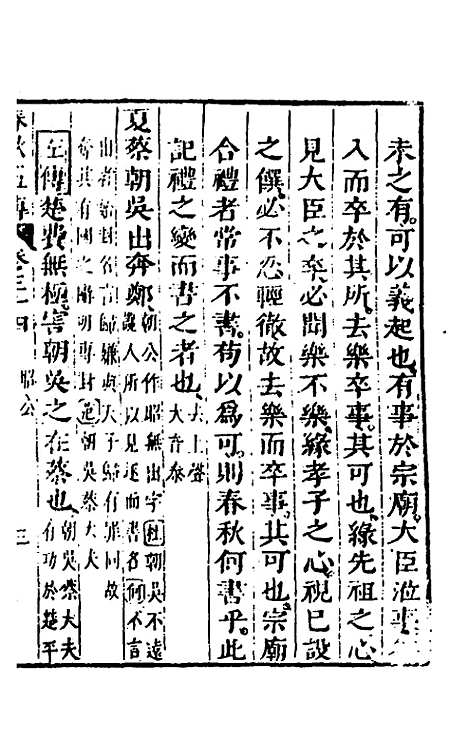 未之有可以義起也有事於宗廟大臣涖事
入而卒於其所去樂卒事其可也緣先祖之心
見大臣之卒必聞樂不樂緣孝子之心視已設
之饌必不忍輕徹故去樂而卒事其可也宗廟
合禮者常事不書苟以為可則春秋何書乎此
記禮之變而書之者也去上聲大音泰
夏蔡朝吳出奔鄭朝公作昭無出字杜朝吳不遠讒人所以見逐而書名何不言
出者
奪其有國之 范朝吳蔡大夫
左傳楚費無極害朝吳之在蔡也朝吳蔡大夫有功於楚平
春秋五傳 卷三十四 昭公 三